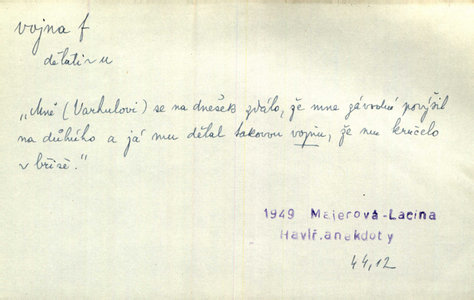 vojna f
dělati v u
„Mně (Varhulovi) se na dnešek zdálo, že mne závodní povýšil
na důlního a já mu dělal takovou vojnu, že mu kručelo
v břiše."
1949 Majerová-Lacina
Havíř.anekdoty
44,12